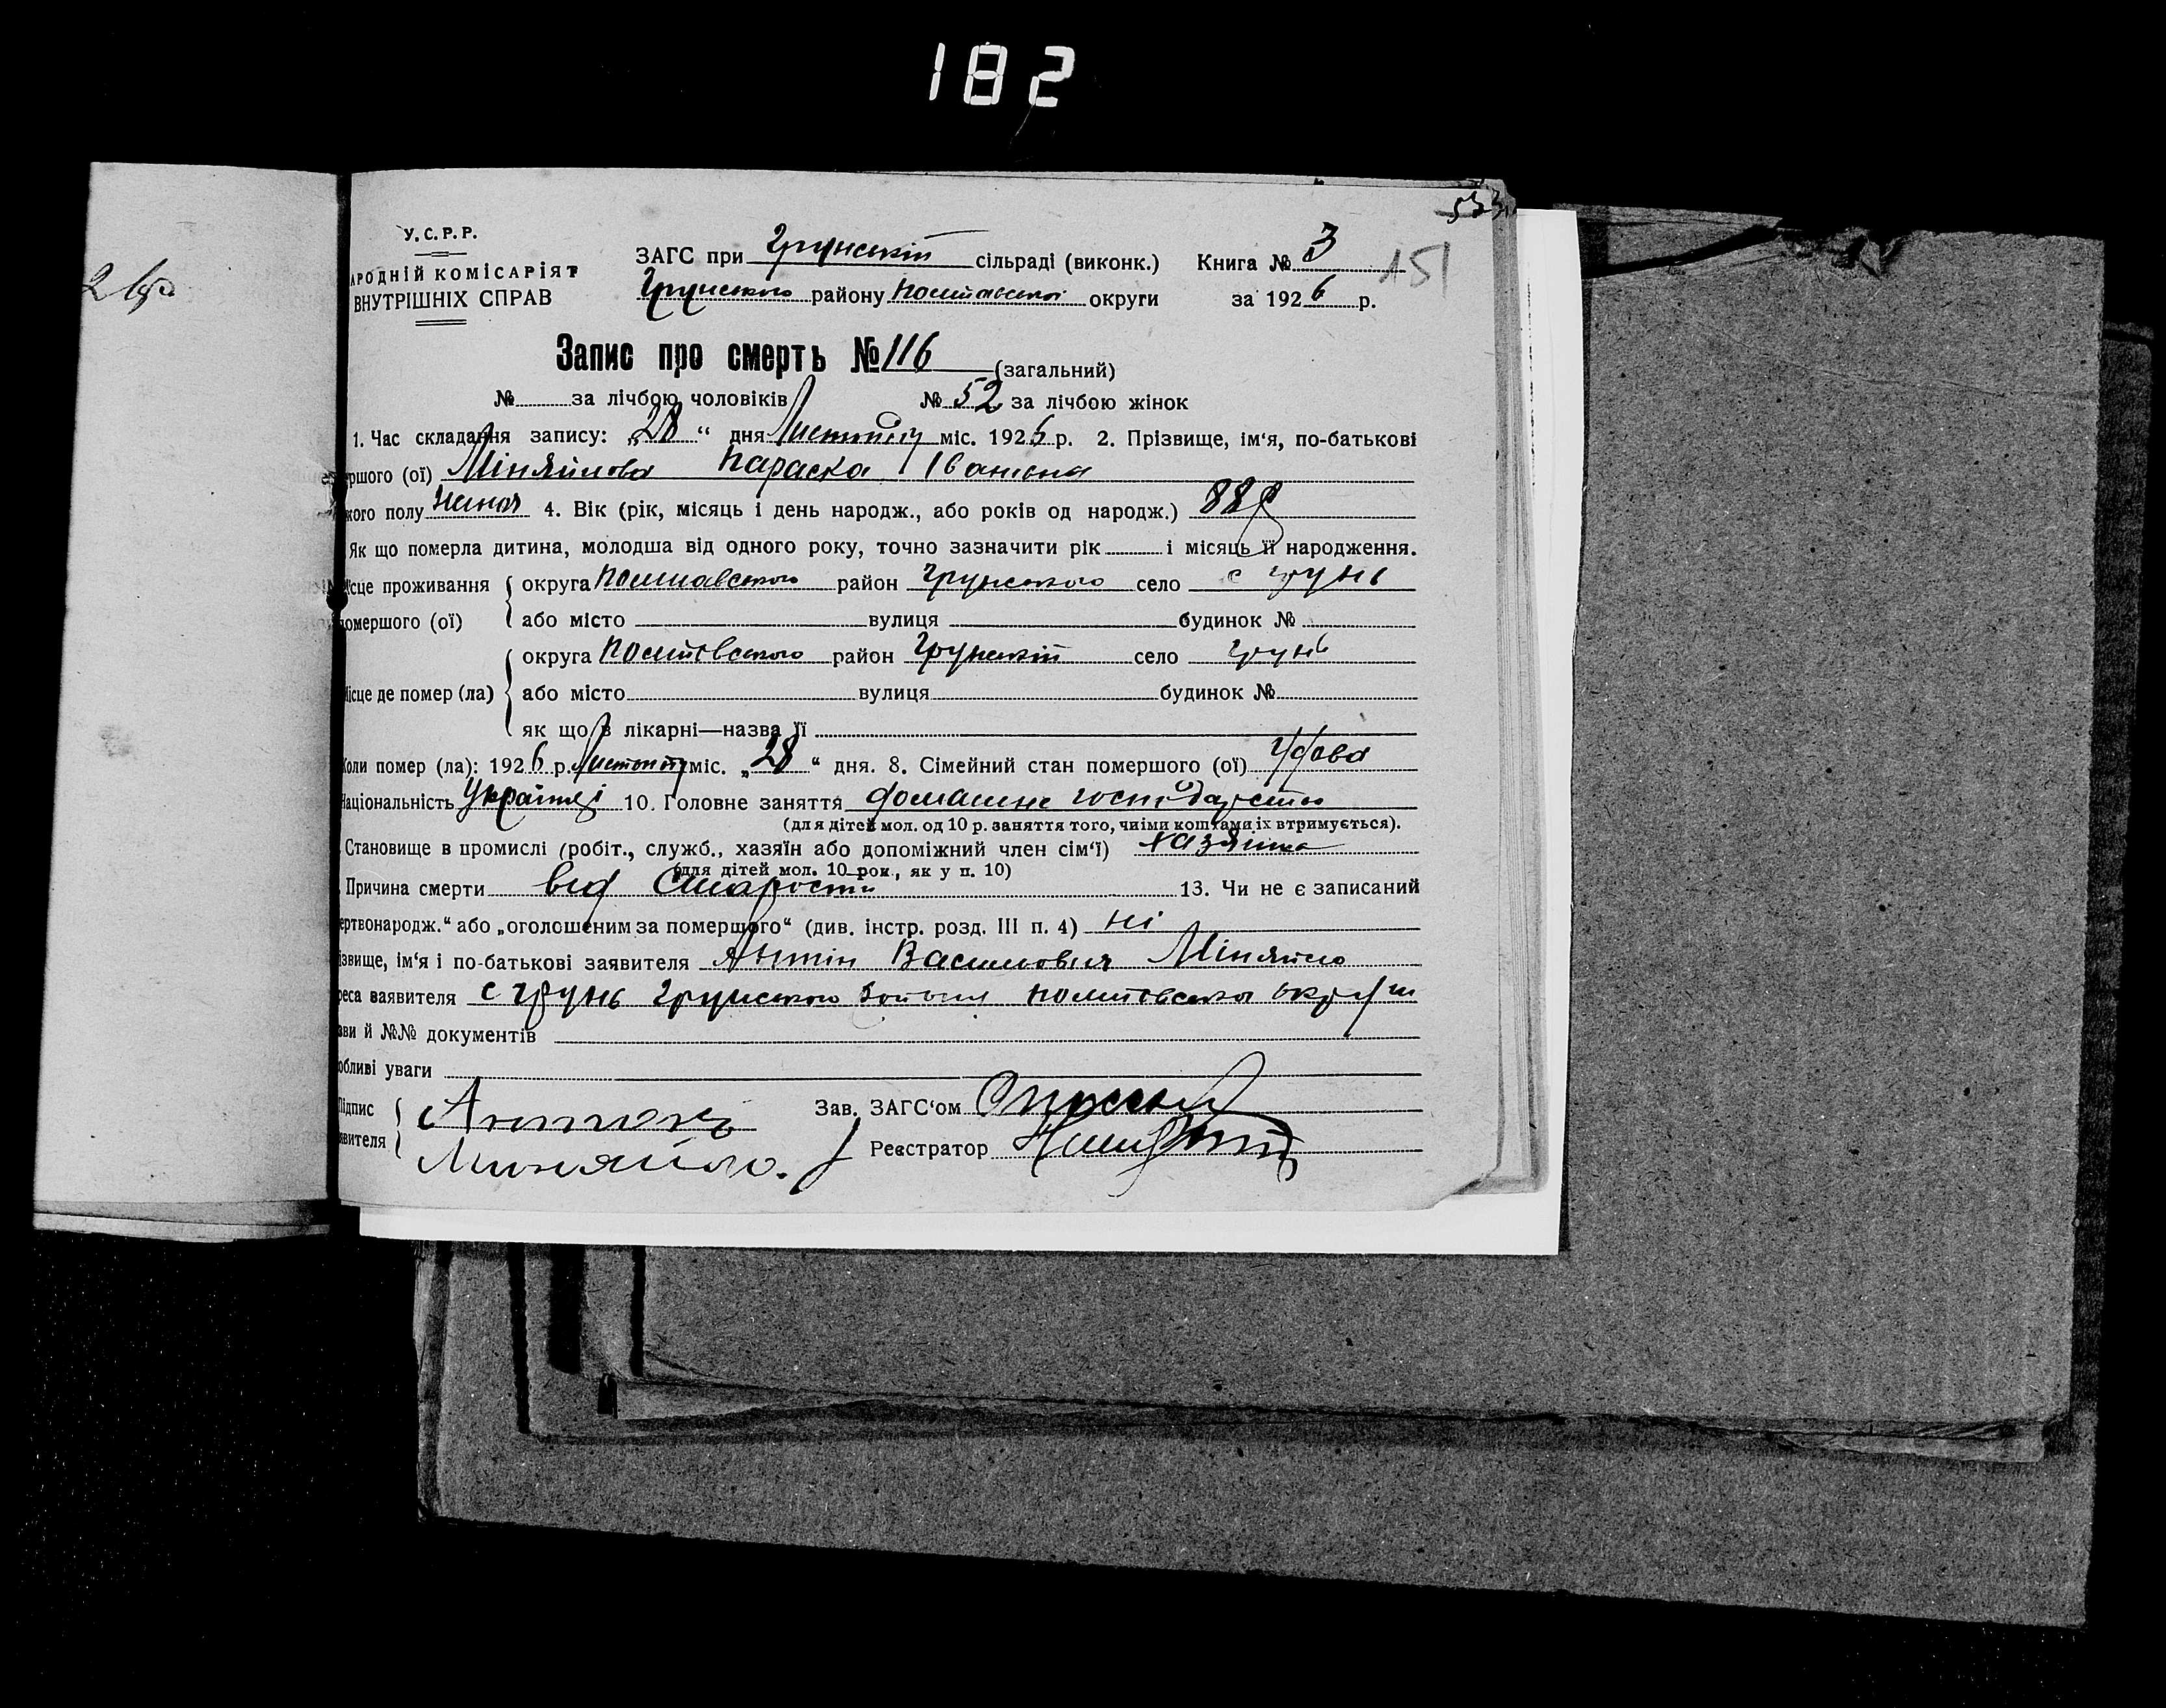 182
533
У.С.Р.Р.
АРОДНІЙ КОМІСАРІЯТ
ВНУТРІШНІХ СПРАВ
ЗАГС при Грунській сільраді (виконк.) Книга № 3
151
Грунського району Полтавської округи за 1926 р.
Запис про смерть № 116 (загальний)
№ за лічбою чоловіків № 52 за лічбою жінок
1. Час складання запису: „28“ дня Листопаду міс. 1926 р. 2. Прізвище, ім'я, по-батькові
ршого (ої) Міняйлова Параска Іванівна
кого полу жіноч 4. Вік (рік, місяць і день народж., або років од народж.) 88 р
Як що померла дитина, молодша від одного року, точно зазначити рік і місяць її народження.
сце проживання округа Полтавського район Грунського село с Грунь
омершого (ої) або місто вулиця будинок №
округа Полтавського район Грунській село Грунь
ісце де помер (ла) або місто вулиця будинок №
як що в лікарні—назва її
Коли помер (ла): 1926 р. Листопаду міс. „28“ дня. 8. Сімейний стан помершого (ої) Удова
Національність Українці 10. Головне заняття домашне господарство
(для дітей мол. од 10 р. заняття того, чиїми коштами їх втримується).
Становище в промислі (робіт., служб., хазяїн або допоміжний член сім'ї) хазяйка
(для дітей мол. 10 рок., як у п. 10)
Причина смерти від старости 13. Чи не є записаний
ертвонародж.“ або „оголошеним за померщого“ (див. інстр. розд. III п. 4) ні
ізвище, ім'я і по-батькові заявителя Антін Васильович Міняйло
реса заявителя с Грунь Грунського Полтавської округи
зви й №№ документів
обливі уваги
Підпис Антонъ Зав. ЗАГС'ом
явителя Миняйло. Реєстратор